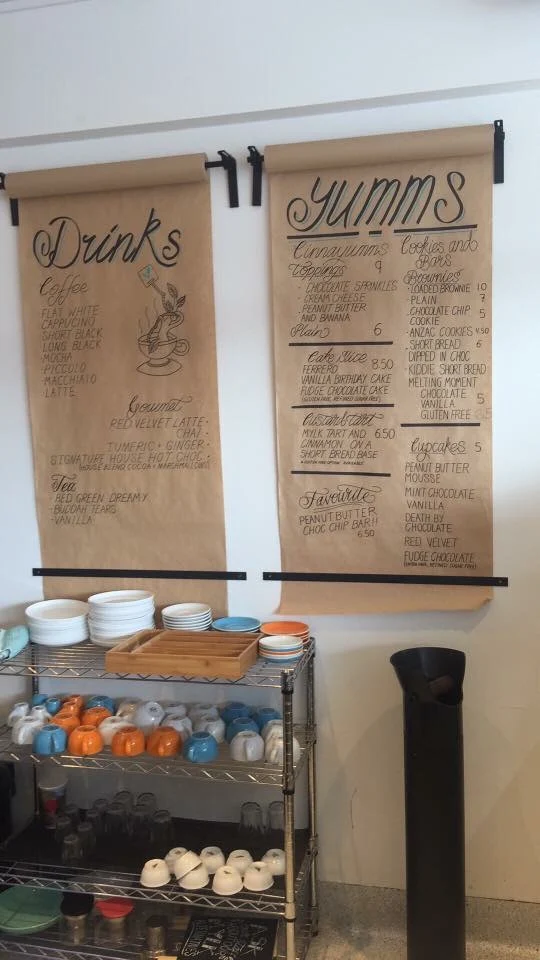 Drinks
Coffee
FLAT WHITE
CAPPUCINO
SHORT BLACK
LONG BLACK
·MOCHA
·PICCOLO
·MACCHIATO
LATTE
Gourmet
RED VELVET LATTE·
CHAI·
TUMERIC + GINGER·
SIGNATURE HOUSE HOT CHOC·
(HOUSE BLEND COCOA + MARSHMALLOWS)
Tea
·RED GREEN DREAMY
·BUDDAH TEARS
·VANILLA
YUMMS
Cinnayumms
Toppings 9
· CHOCOLATE SPRINKLES
· CREAM CHEESE
· PEANUT BUTTER
AND BANANA
Plain 6
Cake Slice
FERRERO 8.50
VANILLA BIRTHDAY CAKE
FUDGE CHOCOLATE CAKE
(GLUTEN FREE, REFINED SUGAR FREE)
Custard tart
MYLK TART AND 6.50
CINNAMON ON A
SHORT BREAD BASE
GLUTEN FREE OPTION AVAILABLE
Favourite
PEANUT BUTTER
CHOC CHIP BAR!!
6.50
Cookies and
Bars
Brownies
·LOADED BROWNIE 10
·PLAIN 7
·CHOCOLATE CHIP 5
COOKIE
·ANZAC COOKIES 4.50
·SHORT BREAD 6
DIPPED IN CHOC
·KIDDIE SHORT BREAD
MELTING MOMENT
CHOCOLATE 5
VANILLA
GLUTEN FREE
Cupcakes 5
PEANUT BUTTER
MOUSSE
MINT CHOCOLATE
VANILLA
DEATH BY
CHOCOLATE
RED VELVET
FUDGE CHOCOLATE
(GLUTEN FREE, REFINED SUGAR FREE)
ASK